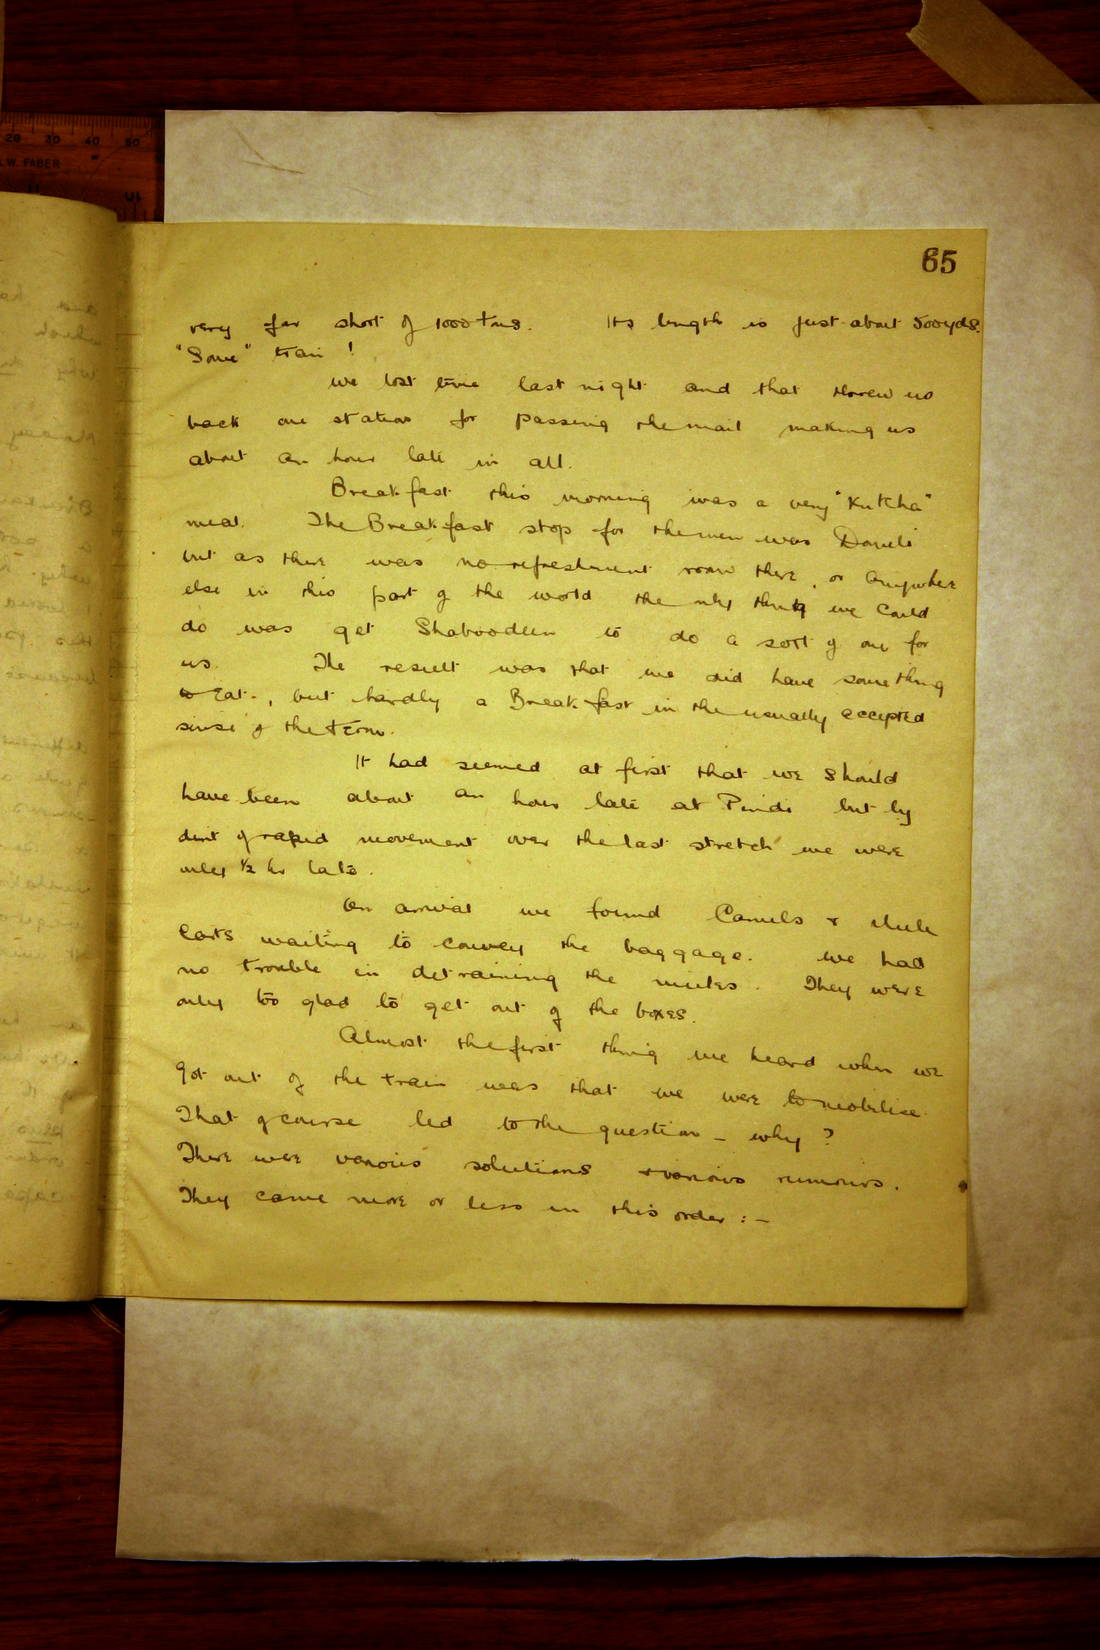 20 30 40 50
W. FABER
65
very far short of 1000 tons. Its length is just about 500 yds.
"Some" train!
We lost time last night and that threw us
back one station for passing the mail making us
about an hour late in all.
Breakfast this morning was a very "Kutcha"
meal. The Breakfast stop for the men was
but as there was no refreshment room there, or anywhere
else in this part of the world the only thing we could
do was get Shaboodeen to do a sort of one for
us. The result was that we did have something
to eat, but hardly a Breakfast in the usually accepted
sense of the term.
It had seemed at first that we should
have been about an hour late at Pindi but by
dint of rapid movement over the last stretch we were
only ½ hr late.
On arrival we found Camels & Mule
Carts waiting to convey the baggage. We had
no trouble in detraining the mules. They were
only too glad to get out of the boxes.
Almost the first thing we heard when we
got out of the train was that we were to mobilise.
That of course led to the question – why?
There were various solutions & various rumours.
They came more or less in this order :–